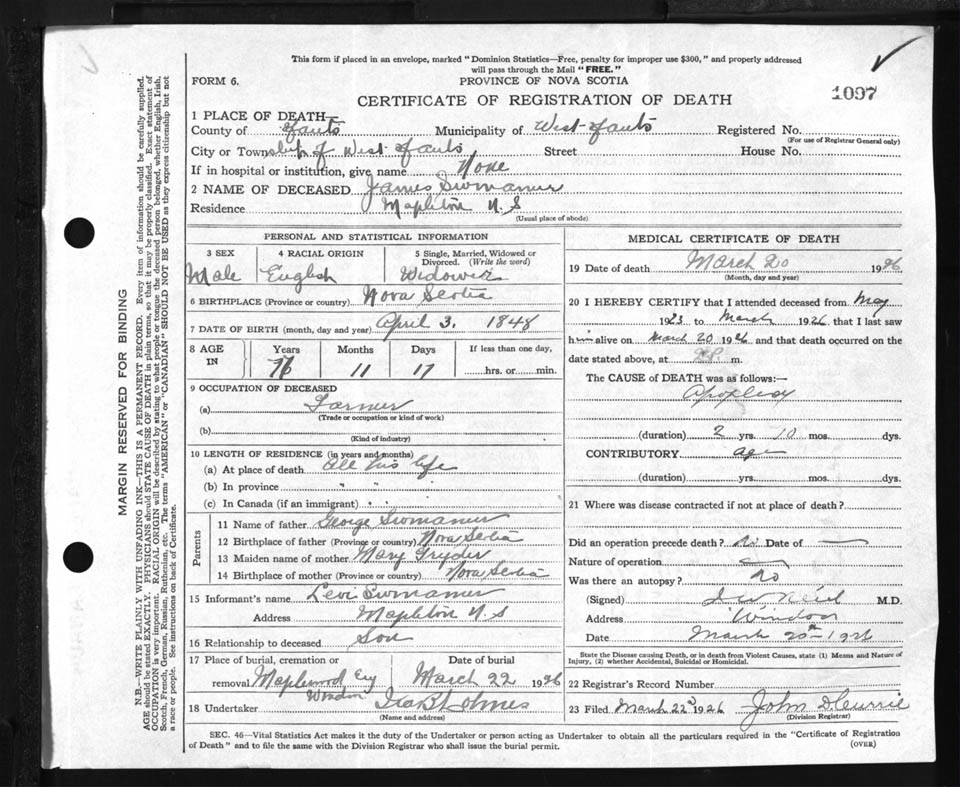 This form if placed in an envelope, marked "Dominion Statistics—Free, penalty for improper use $300," and properly addressed
will pass through the Mail "FREE."
FORM 6.
PROVINCE OF NOVA SCOTIA
CERTIFICATE OF REGISTRATION OF DEATH
1097
1 PLACE OF DEATH—
County of Hants Municipality of West Hants Registered No.
(For use of Registrar General only)
City or Township of West Hants Street House No.
If in hospital or institution, give name None
2 NAME OF DECEASED James
Residence Mapleton N.S
(Usual place of abode)
PERSONAL AND STATISTICAL INFORMATION
3 SEX 4 RACIAL ORIGIN 5 Single, Married, Widowed or
Divorced. (Write the word)
Male English Widower
6 BIRTHPLACE (Province or country) Nova Scotia
7 DATE OF BIRTH (month, day and year) April 3. 1848
8 AGE IN Years Months Days If less than one day,
11 17 hrs. or min.
9 OCCUPATION OF DECEASED
(a) Farmer
(Trade or occupation or kind of work)
(b)
(Kind of industry)
10 LENGTH OF RESIDENCE (in years and months)
(a) At place of death All his life
(b) In province " "
(c) In Canada (if an immigrant) " "
Parents
11 Name of father George
12 Birthplace of father (Province or country) Nova Scotia
13 Maiden name of mother Mary
14 Birthplace of mother (Province or country) Nova Scotia
15 Informant's name Levi
Address Mapleton N.S
16 Relationship to deceased Son
17 Place of burial, cremation or Date of burial
removal Maplewood Cey March 22 1926
Windsor
18 Undertaker Ira B Holmes
(Name and address)
MEDICAL CERTIFICATE OF DEATH
19 Date of death March 20 1926
(Month, day and year)
20 I HEREBY CERTIFY that I attended deceased from May
1923 to March 1926 that I last saw
him alive on March 20 1926 and that death occurred on the
date stated above, at m.
The CAUSE OF DEATH was as follows:—
Apoplexy
(duration) 2 yrs. 10 mos. dys.
CONTRIBUTORY age
(duration) yrs. mos. dys.
21 Where was disease contracted if not at place of death?
Did an operation precede death? No Date of —
Nature of operation —
Was there an autopsy? No
(Signed) M.D.
Address Windsor
Date March 20th 1926
State the Disease causing Death, or in death from Violent Causes, state (1) Means and Nature of
Injury, (2) whether Accidental, Suicidal or Homicidal.
22 Registrar's Record Number
23 Filed March 22d 1926 John D Currie
(Division Registrar)
SEC. 46—Vital Statistics Act makes it duty of the Undertaker or person acting as Undertaker to obtain all the particulars required in the "Certificate of Registration
of Death" and to file the same with the Division Registrar who shall issue the burial permit.
(OVER)
MARGIN RESERVED FOR BINDING
N.B.—WRITE PLAINLY WITH UNFADING INK—THIS IS A PERMANENT RECORD. Every item of information should be carefully supplied.
AGE should be stated EXACTLY. PHYSICIANS should STATE CAUSE OF DEATH in plain terms, so that it may be properly classified. Exact statement of
OCCUPATION is very important. RACIAL ORIGIN will be described by stating to what people or tongue the deceased person belonged, whether English, Irish,
Scotch, French, German, Russian, Ruthenian, etc. The terms "AMERICAN" or "CANADIAN" SHOULD NOT BE USED as they express citizenship but not
a race or people. See instructions on back of Certificate.